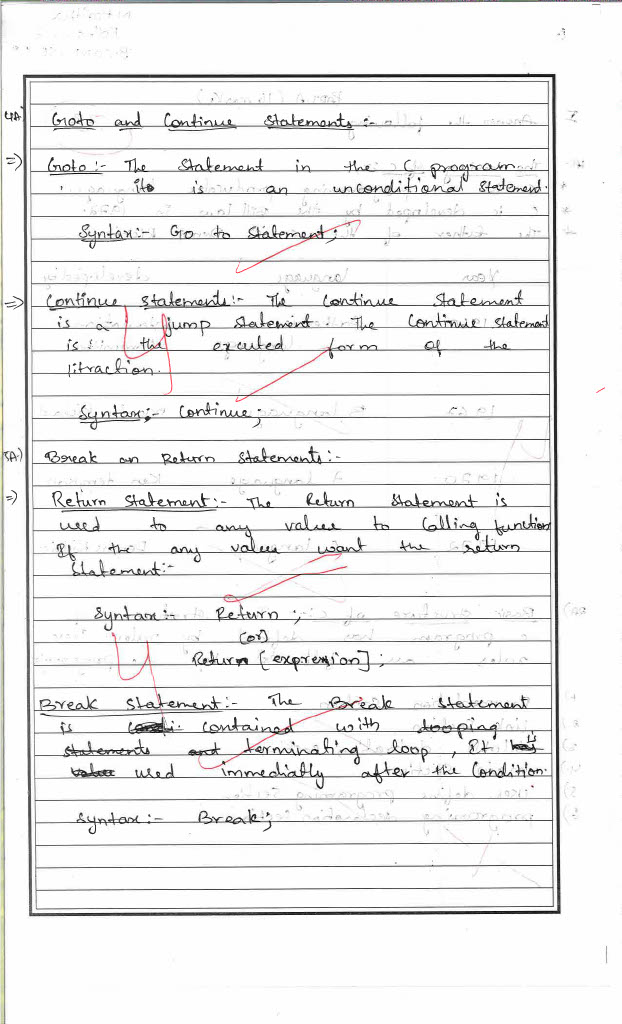 4A) Goto and Continue statements :-
=) Goto :- The statement in the C program.
it is an unconditional statement.
Syntax:- Go to statement;
=) Continue statements:- The Continue statement
is a jump statement. The Continue statement
is the excuted form of the
litraction.
Syntax:- Continue;
5A) Break an Return statements :-
=) Return statement:- The Return statement is
used to any value to Calling function
If the any value want the return
statement:-
Syntax:- Return ;
(or)
Return [expression];
Break statement:- The Break statement
is contained with looping
statements and terminating loop, It
used immediatly after the Condition.
Syntax:- Break;